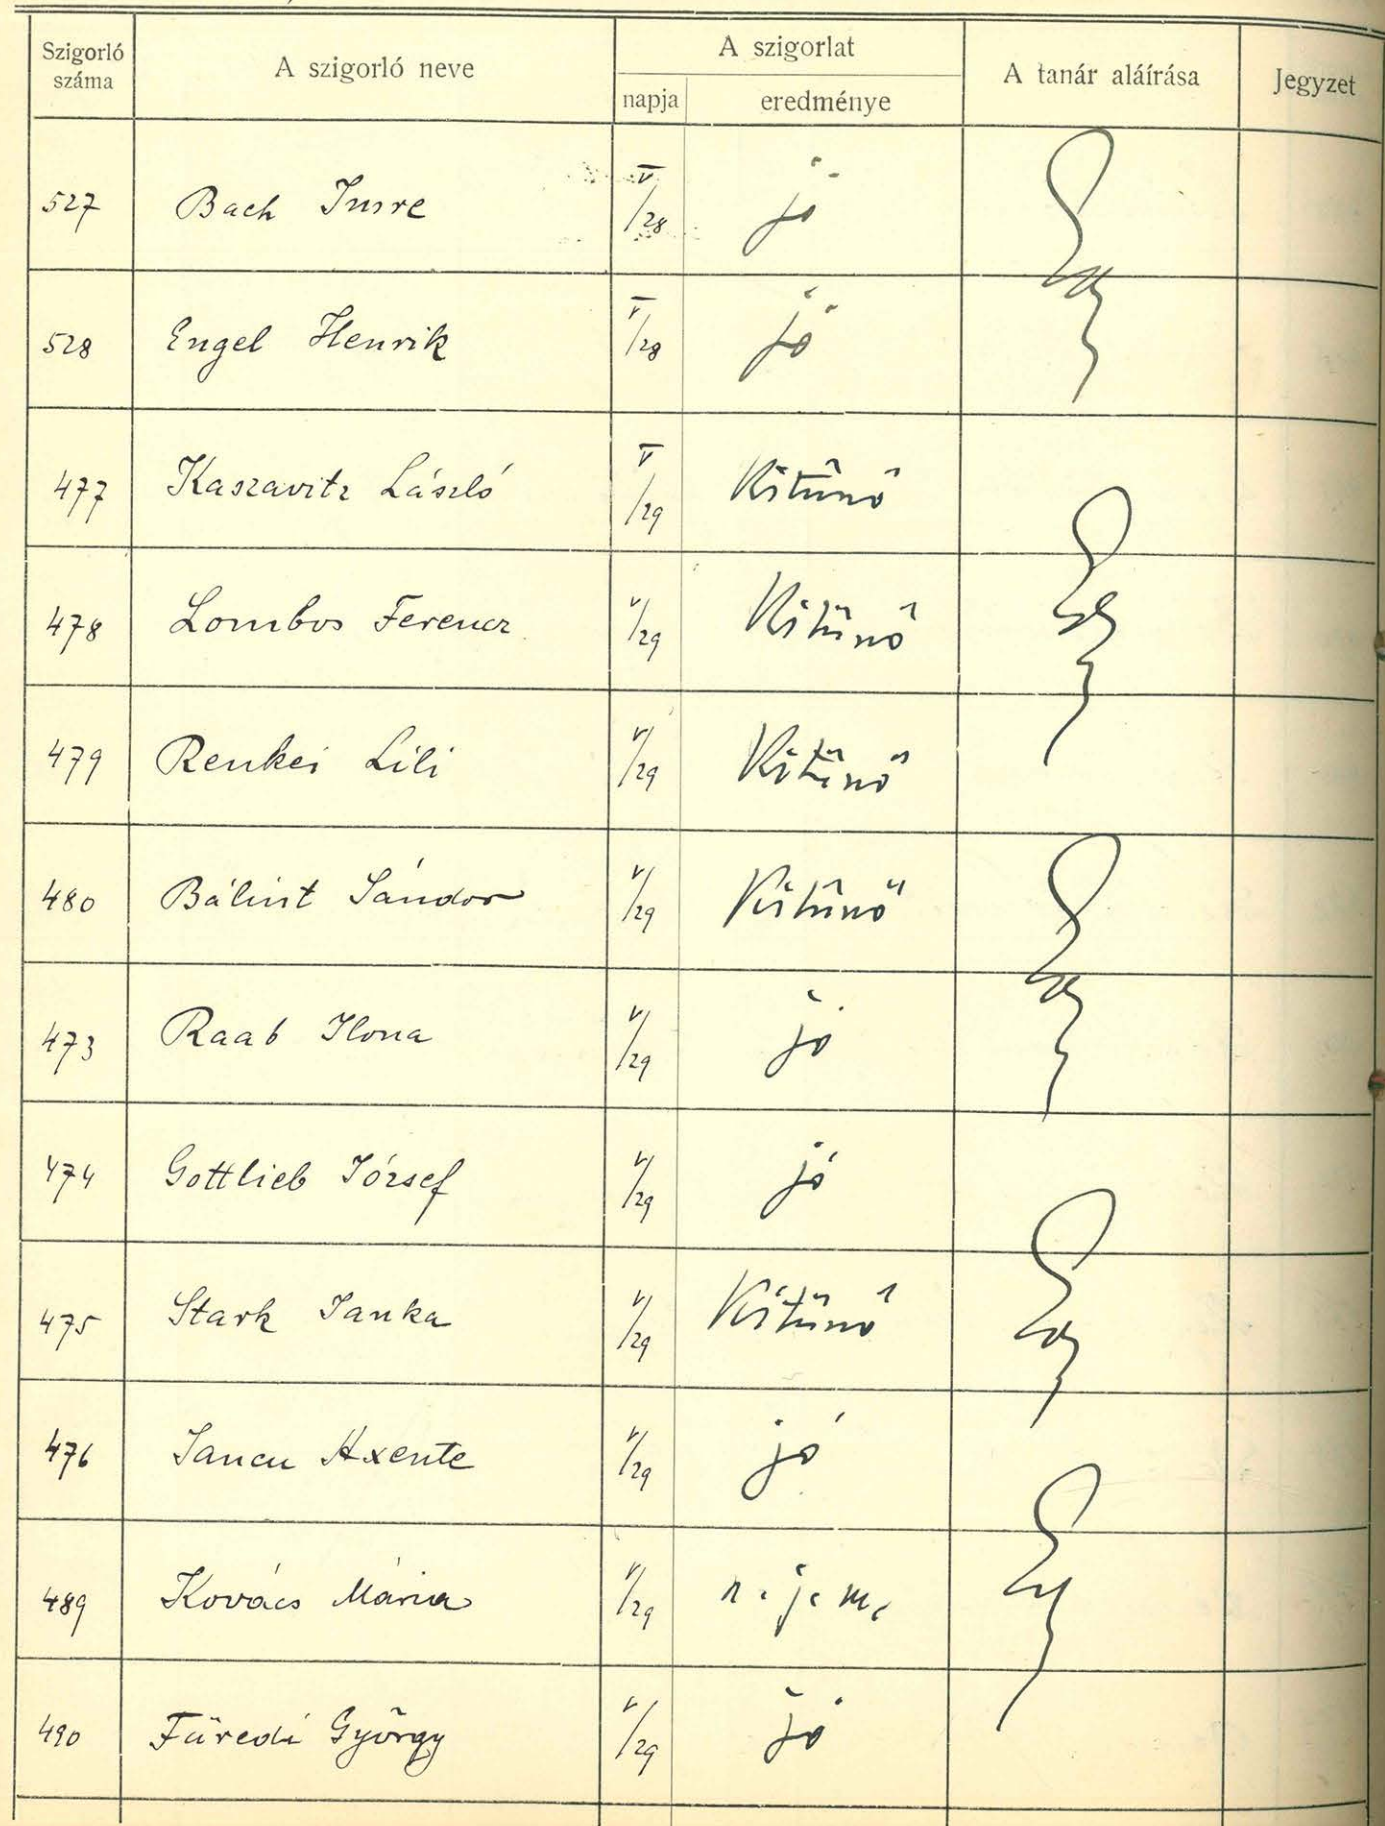 Szigorló száma A szigorló neve A szigorlat A tanár aláírása Jegyzet
napja eredménye
527 Bach Imre V/28 jó
528 Engel Henrik V/28 jó
477 Kaszavitz László V/29 Kitünő
478 Lombos Ferencz V/29 Kitünő
479 Renkei Lili V/29 Kitünő
480 Bálint Sándor V/29 Kitünő
473 Raab Ilona V/29 jó
474 Gottlieb József V/29 jó
475 Stark Janka V/29 Kitünő
476 Jancu Axente V/29 jó
489 Kovács Mária V/29 n. j. m.
490 Füredi György V/29 jó